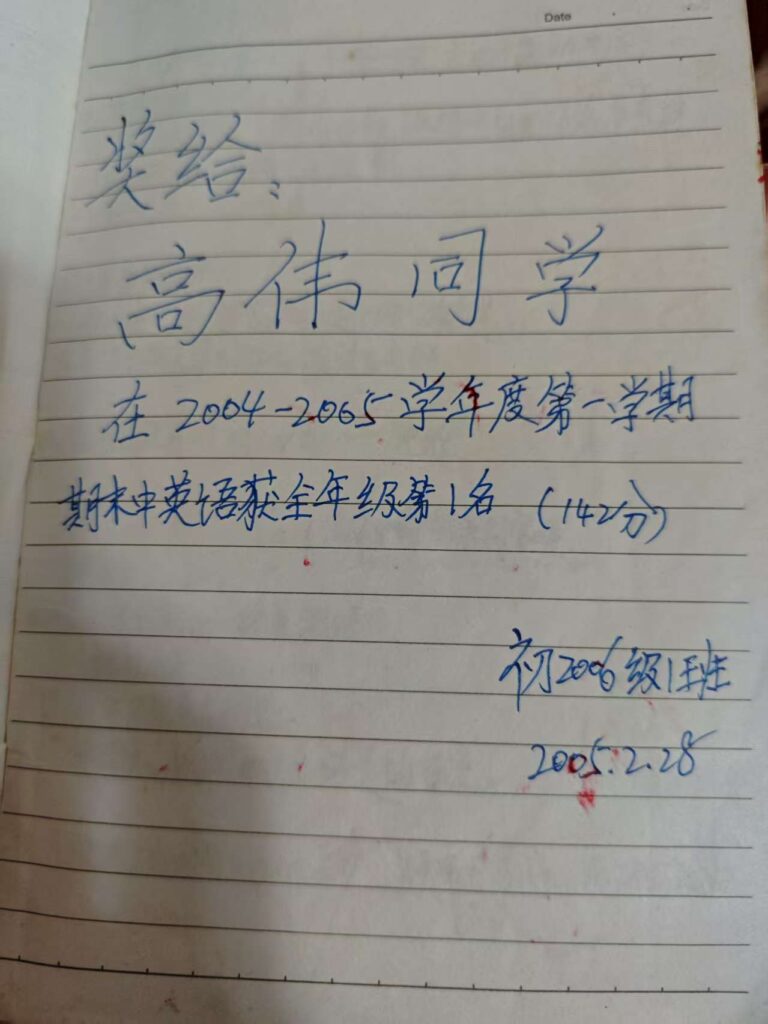 Date
奖给:
高伟同学
在 2004-2005学年度第一学期
期末中英语获全年级第1名 (142分)
初2006级1班
2005.2.28